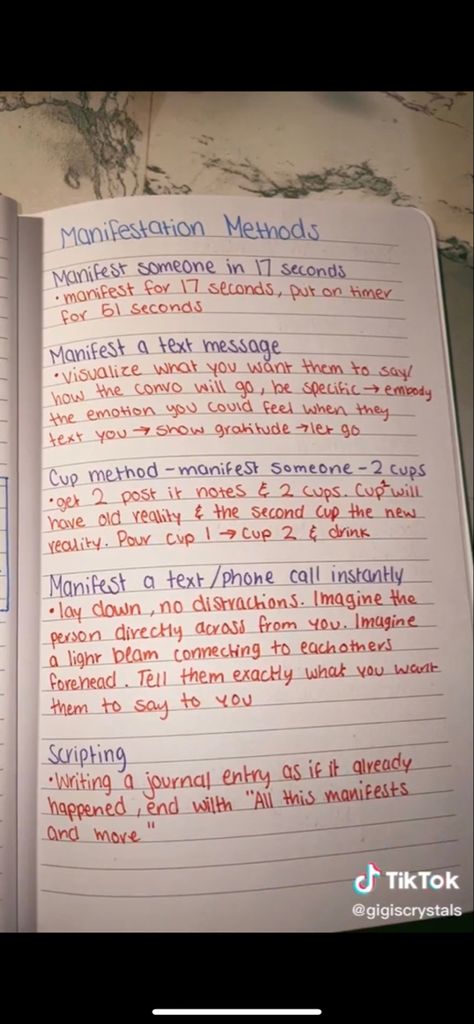 Manifestation Methods
Manifest someone in 17 seconds
• manifest for 17 seconds, put on timer
for 51 seconds
Manifest a text message
• Visualize what you want them to say/
how the convo will go, be specific → embody
the emotion you could feel when they
text you → show gratitude → let go
Cup method - manifest someone - 2 cups
• get 2 post it notes & 2 cups. Cup will
have old reality & the second cup the new
reality. Pour cup 1 → cup 2 & drink
Manifest a text/phone call instantly
• lay down, no distractions. Imagine the
person directly across from you. Imagine
a light beam connecting to eachothers
forehead. Tell them exactly what you want
them to say to you
Scripting
• Writing a journal entry as if it already
happened, end with "All this manifests
and more"
TikTok
@gigiscrystals